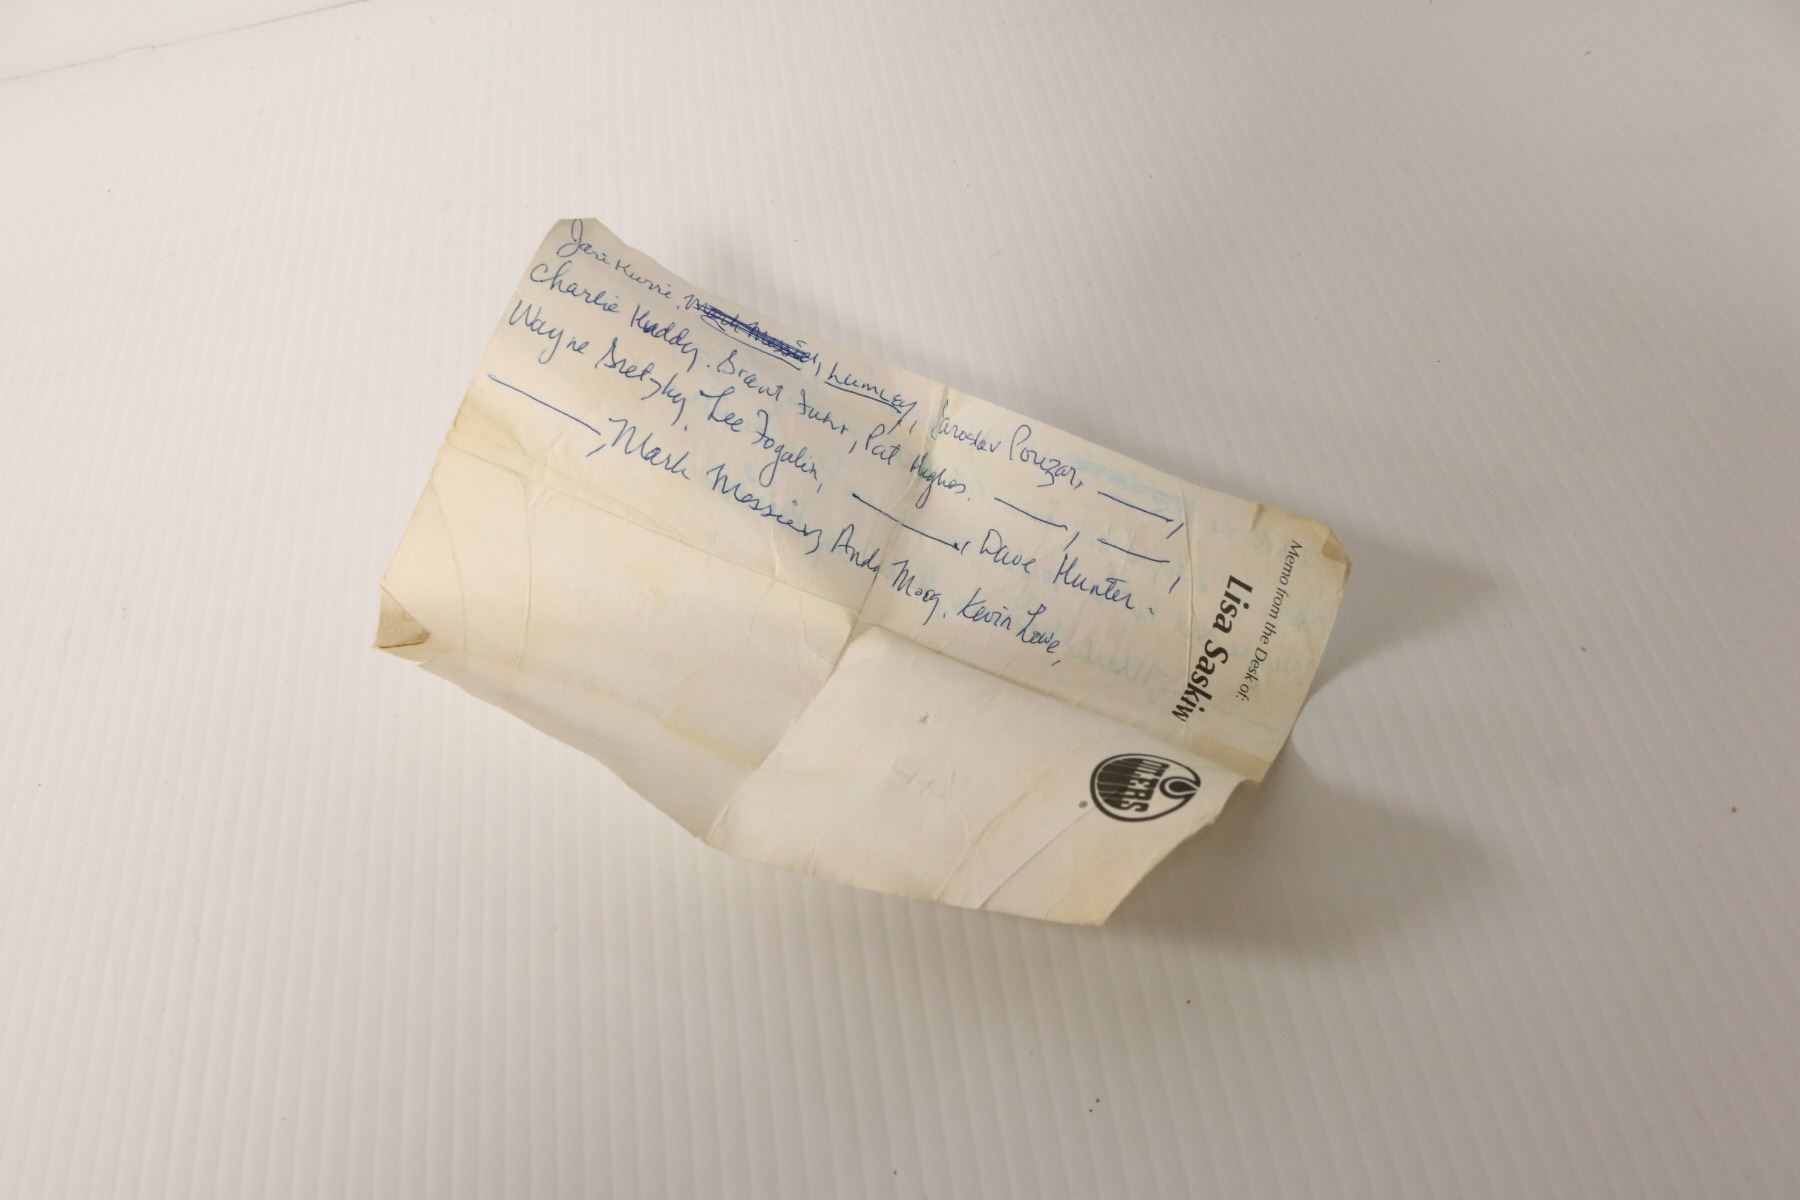 Jari Kurri, Mark Messier, Lumley, Jaroslav Pouzar, ———,
Charlie Huddy. Grant Fuhr, Pat Hughes. ———, ———,
Wayne Gretzky. Lee Fogolin, ———, Dave Hunter.
———, Mark Messier, Andy Moog. Kevin Lowe,
Memo from the Desk of:
Lisa Saskiw
OILERS
®